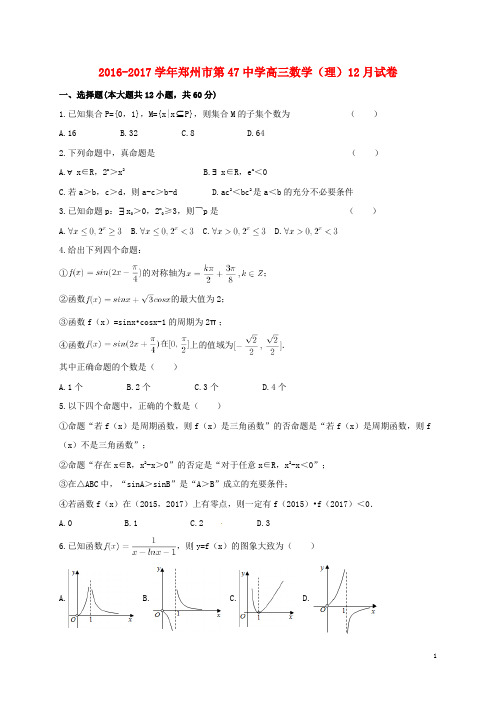 2016-2017学年郑州市第47中学高三数学（理）12月试卷
一、选择题(本大题共12小题，共60分)
1.已知集合P={0，1}，M={x|x⊆P}，则集合M的子集个数为 （ ）
A.16 B.32 C.8 D.64
2.下列命题中，真命题是 （ ）
A.∀ x∈R，2ˣ＞x² B.∃ x∈R，eˣ＜0
C.若a＞b，c＞d，则a-c＞b-d D.ac²＜bc²是a＜b的充分不必要条件
3.已知命题p：∃x₀＞0，2ˣ₀≥3，则￢p是 （ ）
A.∀x≤0,2ˣ≥3 B.∀x≤0,2ˣ<3 C.∀x>0,2ˣ≤3 D.∀x>0,2ˣ<3
4.给出下列四个命题；
①f(x)=sin(2x-π/4)的对称轴为x=kπ/2+3π/8,k∈Z；
②函数f(x)=sinx+√3cosx的最大值为2；
③函数f（x）=sinx•cosx-1的周期为2π；
④函数f(x)=sin(2x+π/4)在[0,π/2]上的值域为[-√2/2,√2/2]．
其中正确命题的个数是（ ）
A.1个 B.2个 C.3个 D.4个
5.以下四个命题中，正确的个数是（ ）
①命题“若f（x）是周期函数，则f（x）是三角函数”的否命题是“若f（x）是周期函数，则f
（x）不是三角函数”；
②命题“存在x∈R，x²-x＞0”的否定是“对于任意x∈R，x²-x＜0”；
③在△ABC中，“sinA＞sinB”是“A＞B”成立的充要条件；
④若函数f（x）在（2015，2017）上有零点，则一定有f（2015）•f（2017）＜0．
A.0 B.1 C.2 D.3
6.已知函数f(x)=1/(x-lnx-1)，则y=f（x）的图象大致为（ ）
A. y O 1 x B. y O 1 x C. y O 1 x D. y O 1 x
1